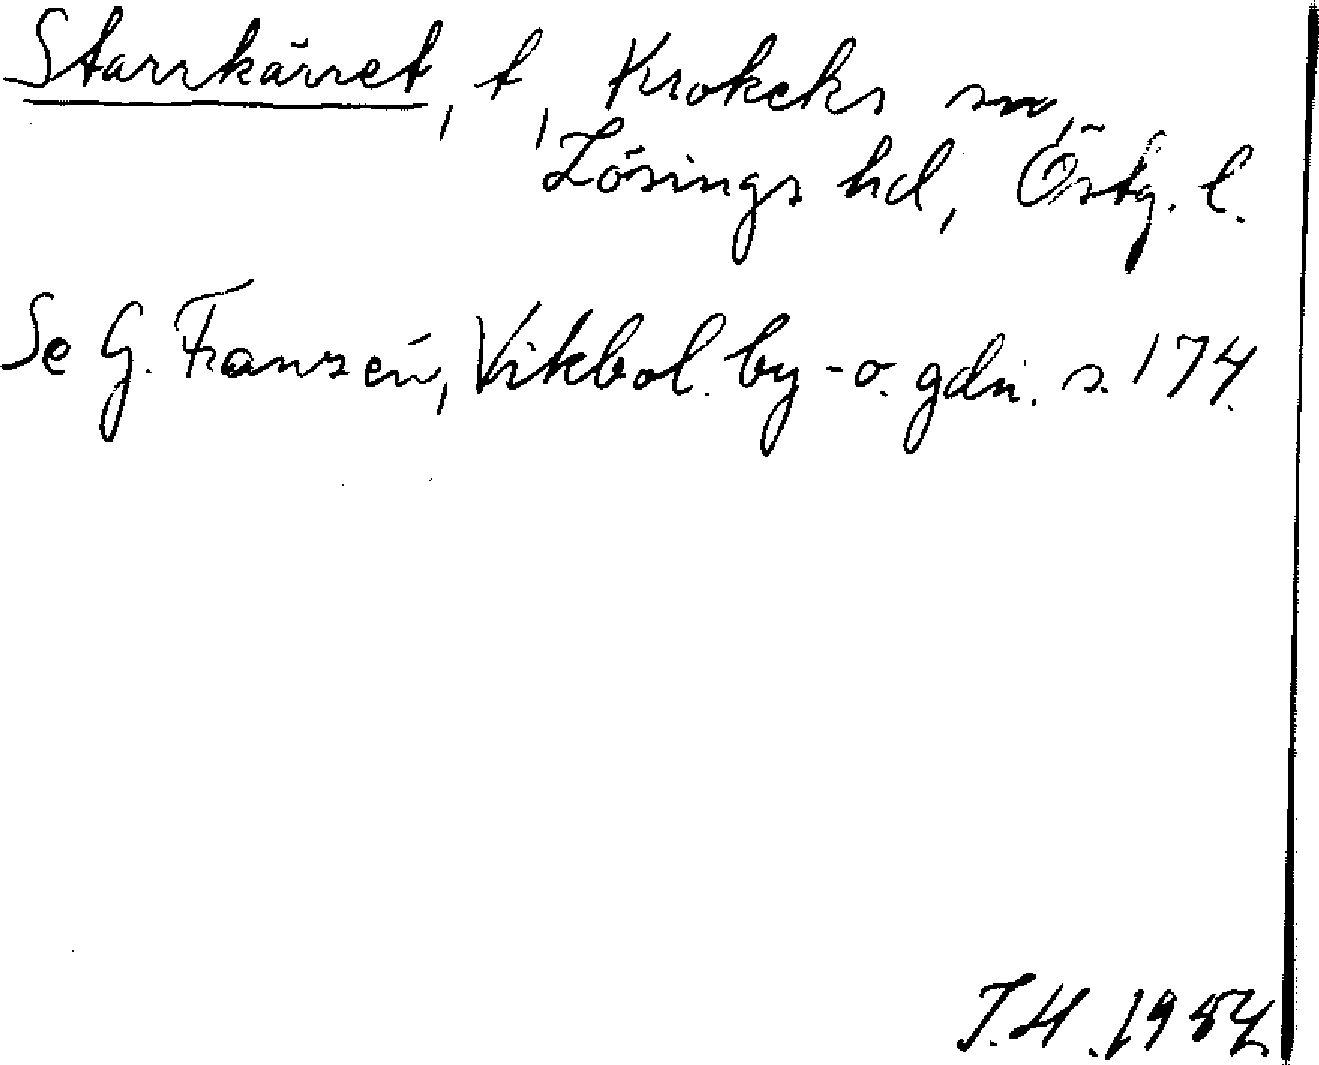 Starrkärret, t, Krokeks sn,
Lösings hd, Östg. l.
Se G. Franzén, Vikbol. by- o. gdn. s. 174.
T.H. 1984